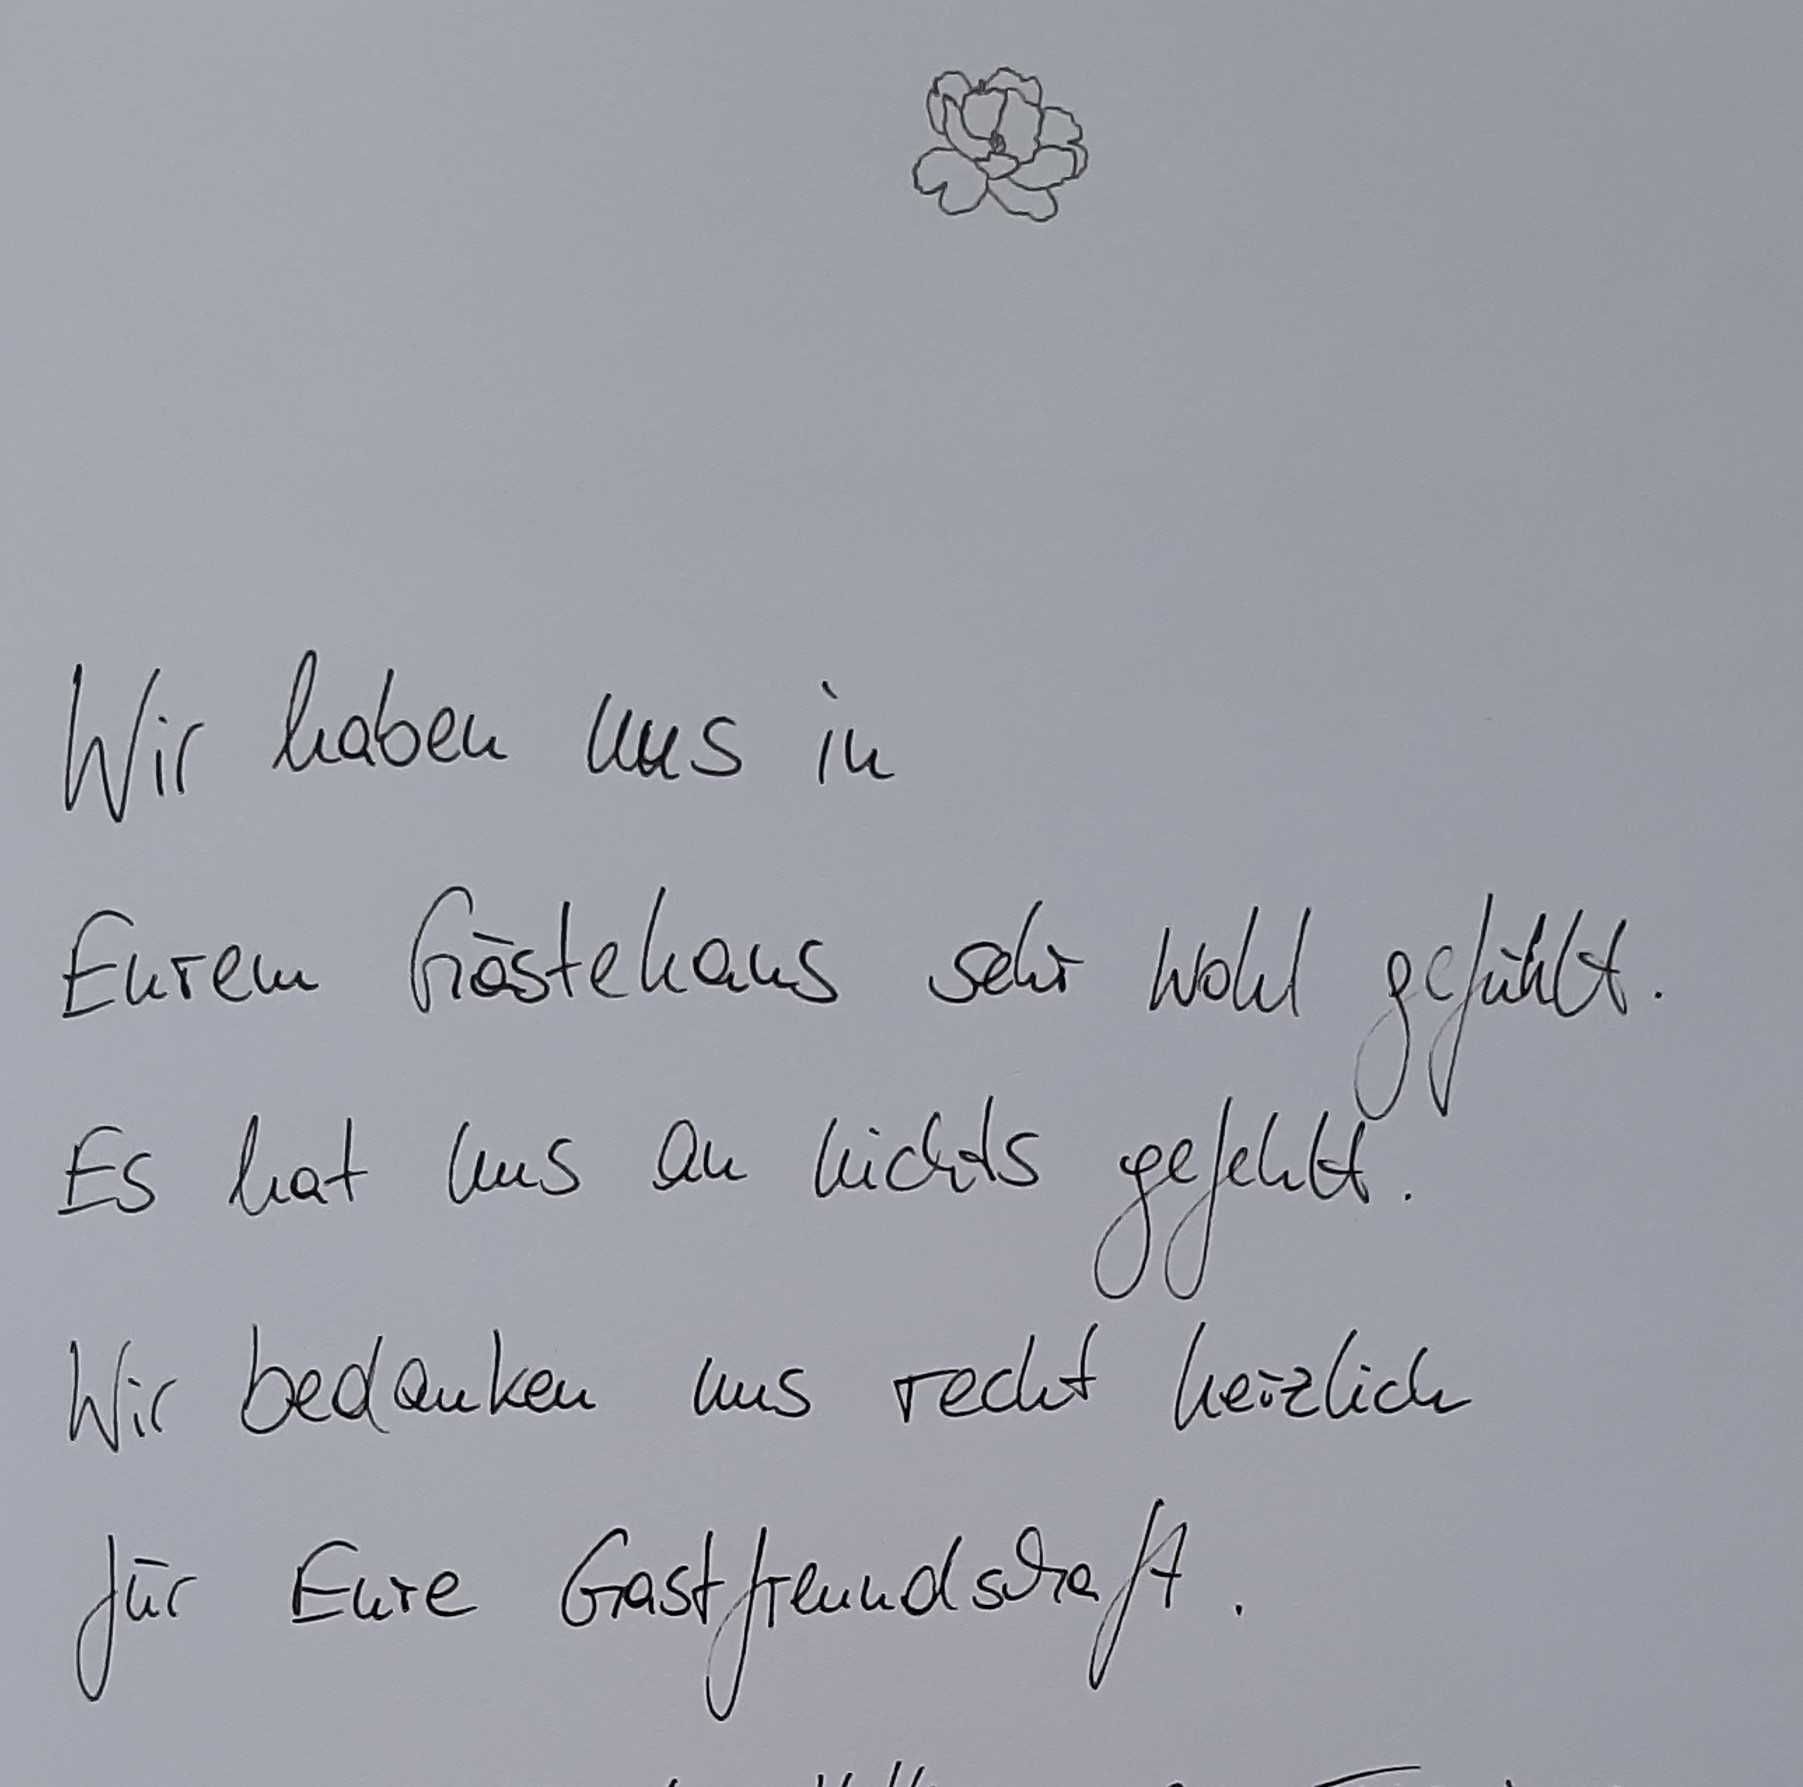 Wir haben uns in
Eurem Gästehaus sehr wohl gefühlt.
Es hat uns an nichts gefehlt.
Wir bedanken uns recht herzlich
für Eure Gastfreundschaft.